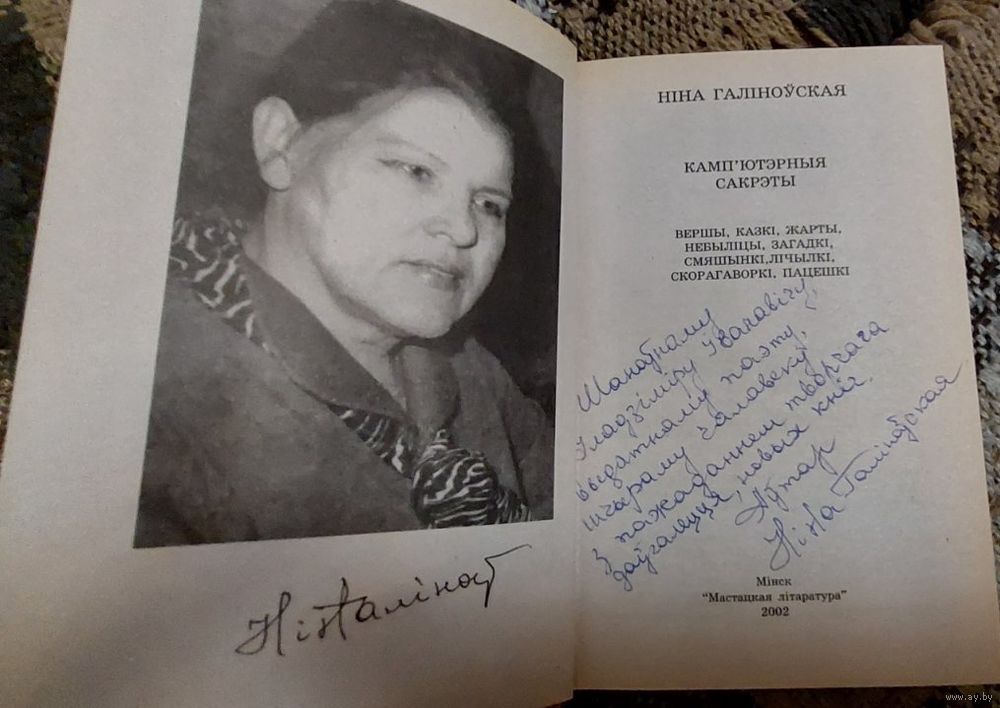 НІНА ГАЛІНОЎСКАЯ
КАМП'ЮТЭРНЫЯ
САКРЭТЫ
ВЕРШЫ, КАЗКІ, ЖАРТЫ,
НЕБЫЛІЦЫ, ЗАГАДКІ,
СМЯШЫНКІ,ЛІЧЫЛКІ,
СКОРАГАВОРКІ, ПАЦЕШКІ
Шаноўнаму
Уладзіміру Іванавічу,
выдатнаму паэту,
шчыраму чалавеку
з пажаданнем творчага
даўгалецця, новых кніг.
Аўтар
Ніна Галіноўская
Мінск
"Мастацкая літаратура"
2002
www.ay.by